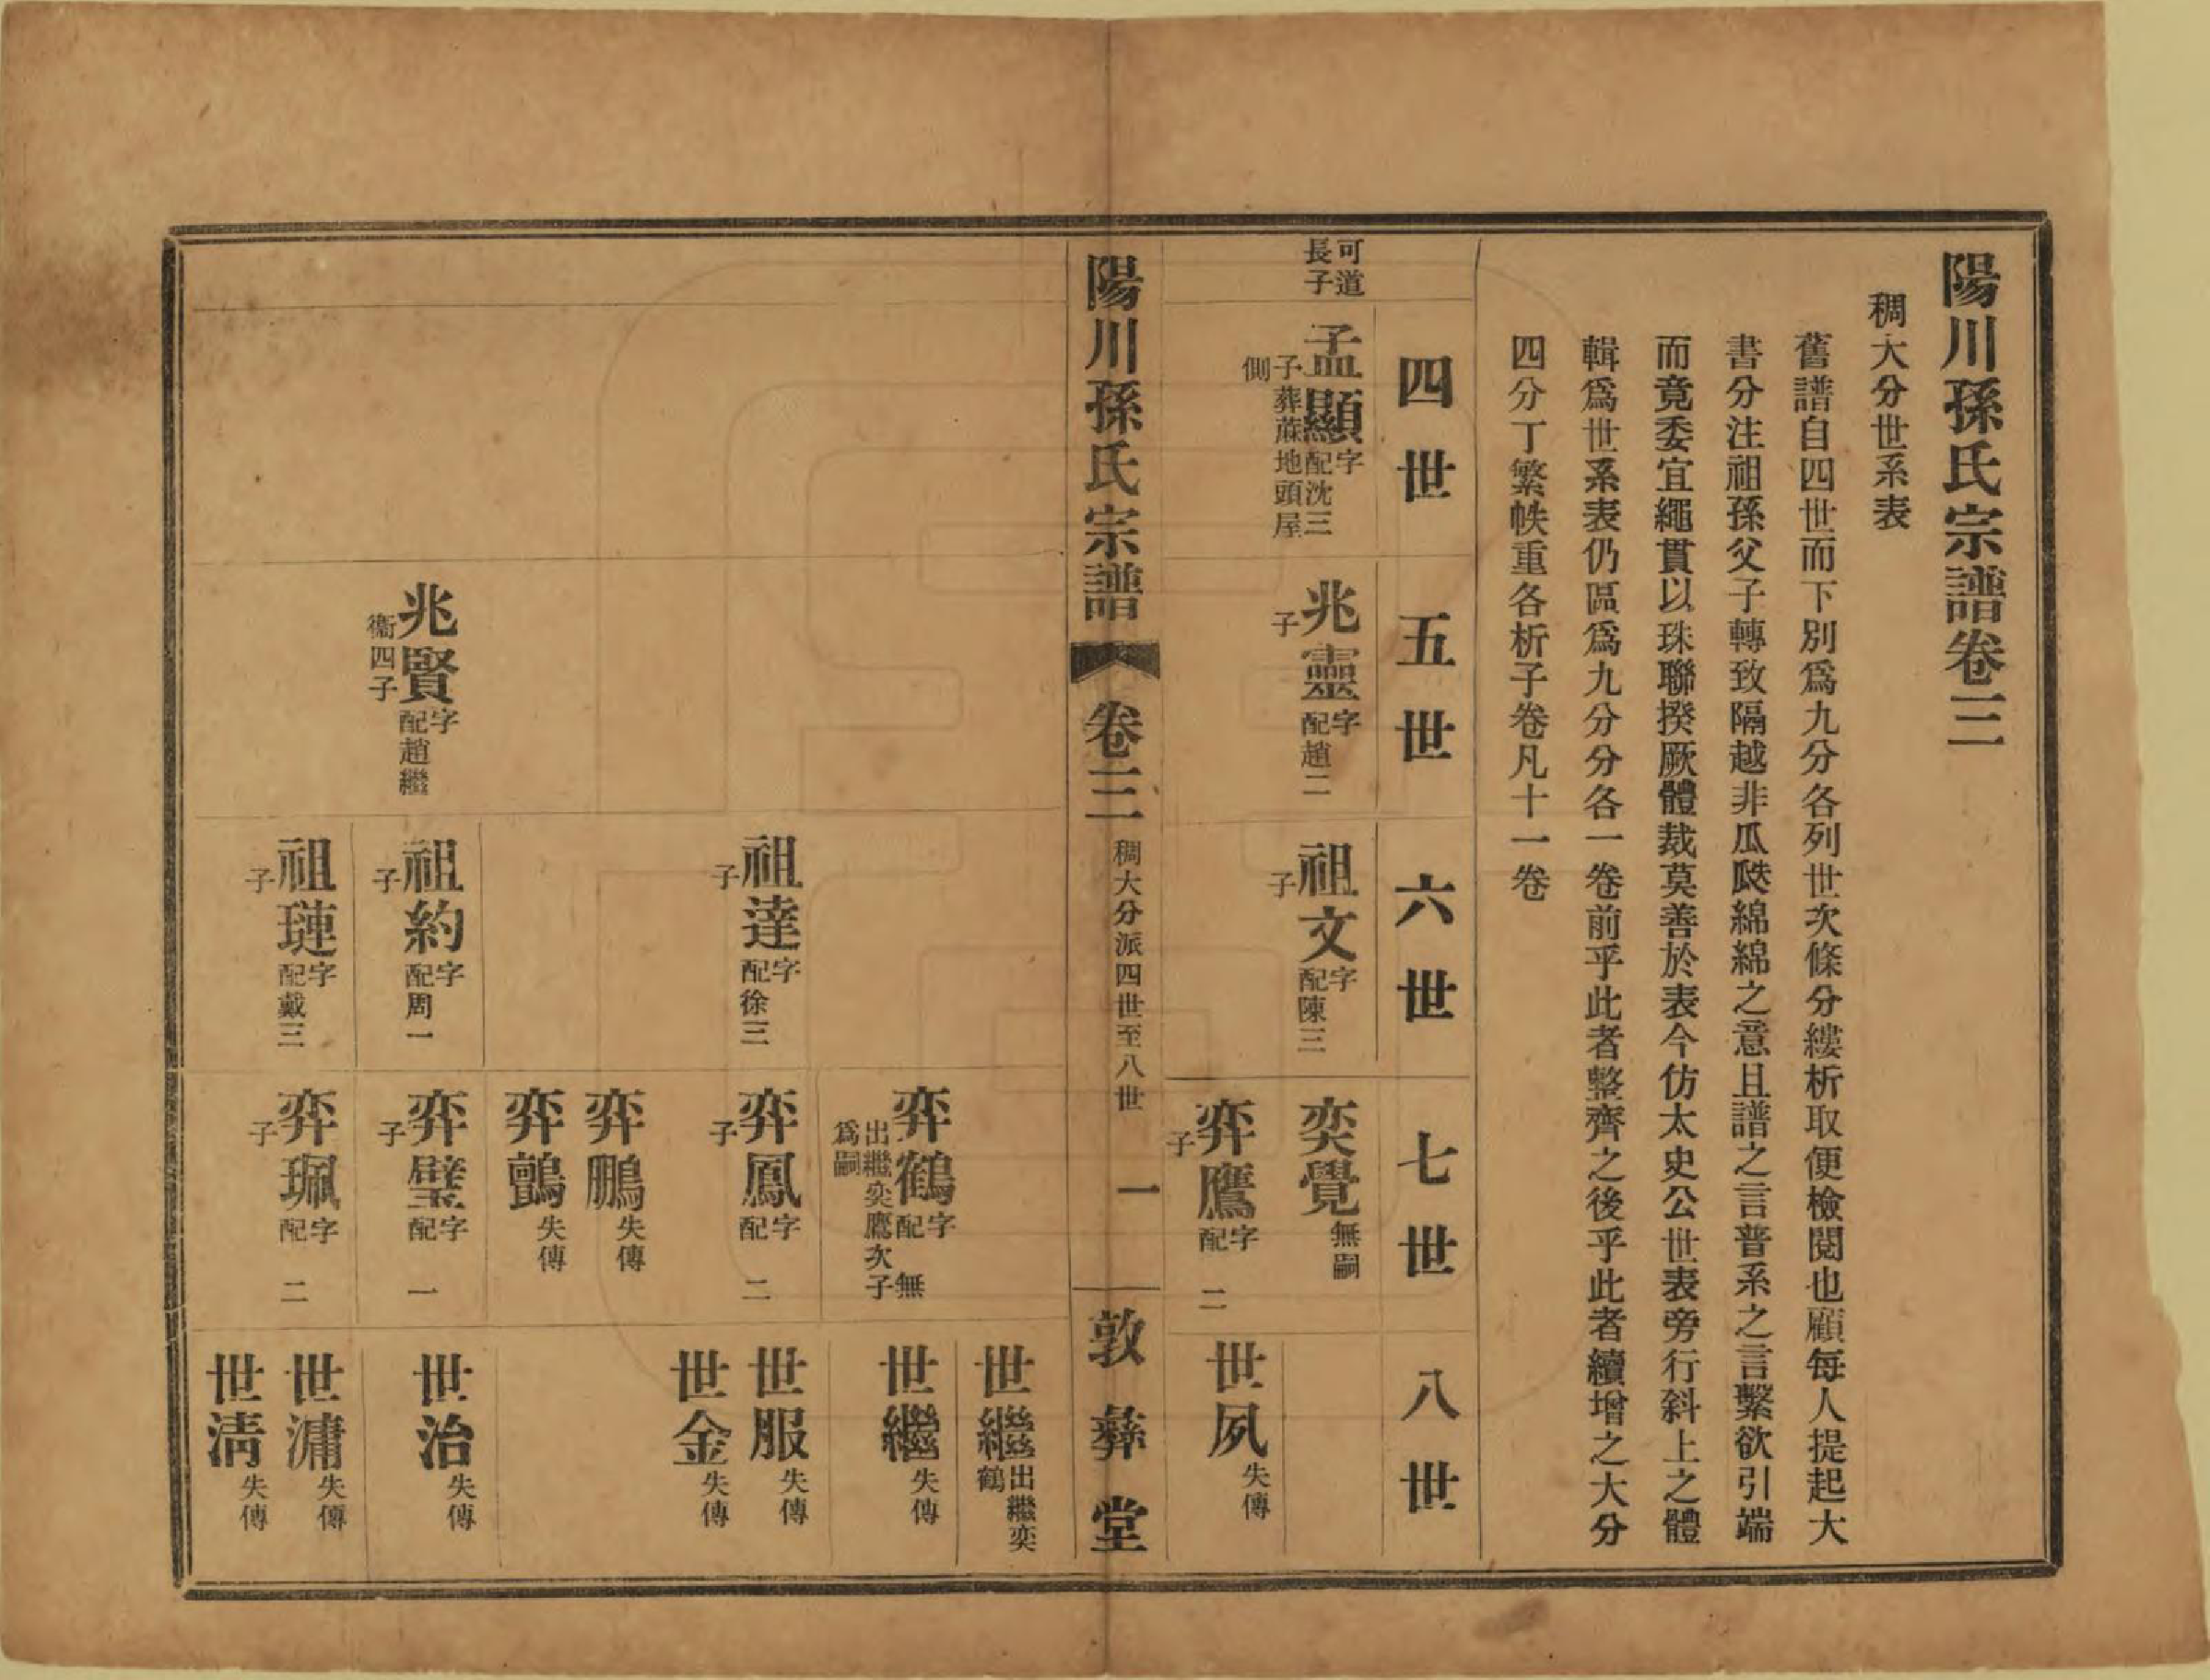 陽川孫氏宗譜卷三
稠大分世系表
舊譜自四世而下別爲九分各列世次條分縷析取便檢閱也顧每人提起大
書分注祖孫父子轉致隔越非瓜瓞綿綿之意且譜之言普系之言繫欲引端
而竟委宜繩貫以珠聯揆厥體裁莫善於表今仿太史公世表旁行斜上之體
輯爲世系表仍區爲九分分各一卷前乎此者整齊之後乎此者續增之大分
四分丁繁帙重各析子卷凡十一卷
四世
五世
六世
七世
八世
可道
長子
孟顯字
配沈三
子葬蔴地頭屋
側
兆靈字
配趙二
子
祖文字
配陳三
子
奕覺無嗣
弈鷹字
配 二
子
世夙失傳
陽川孫氏宗譜
卷三
稠大分派四世至八世
一
敦彝堂
世繼出繼奕
鶴
弈鶴字
配 無
出繼奕鷹次子
爲嗣
世繼失傳
祖達字
配徐三
子
弈鳳字
配 二
子
世服失傳
世金失傳
弈鵬失傳
弈鷬失傳
兆賢字
配趙繼
衞四子
祖約字
配周一
子
弈璧字
配 一
子
世治失傳
祖璉字
配戴三
子
弈珮字
配 二
子
世滽失傳
世淸失傳